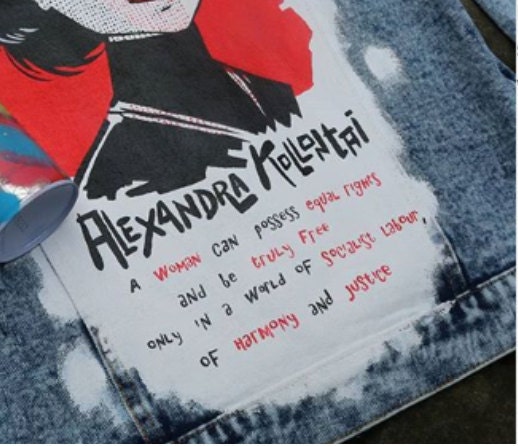 ALEXANDRA KOLLONTAI
A WOMAN CAN POSSESS equal rights
and be truly Free
ONLY IN a WORLD OF Socialist Labour,
OF HARMONY and JUSTICE